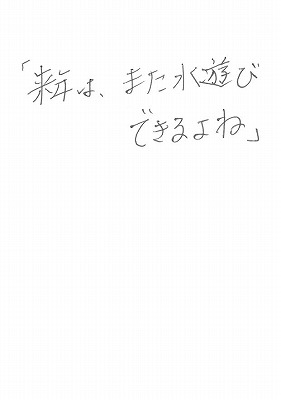 「来年は、また水遊び
できるよね」